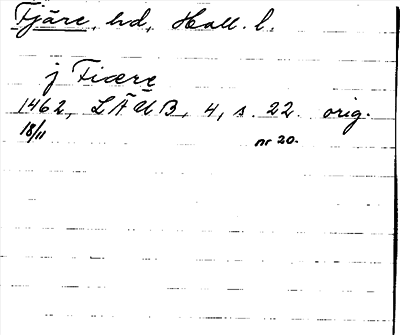 Fjäre, hd, Hall. l.
j Fiære
1462, LÄUB, 4, s. 22. orig.
18/11 nr 20.